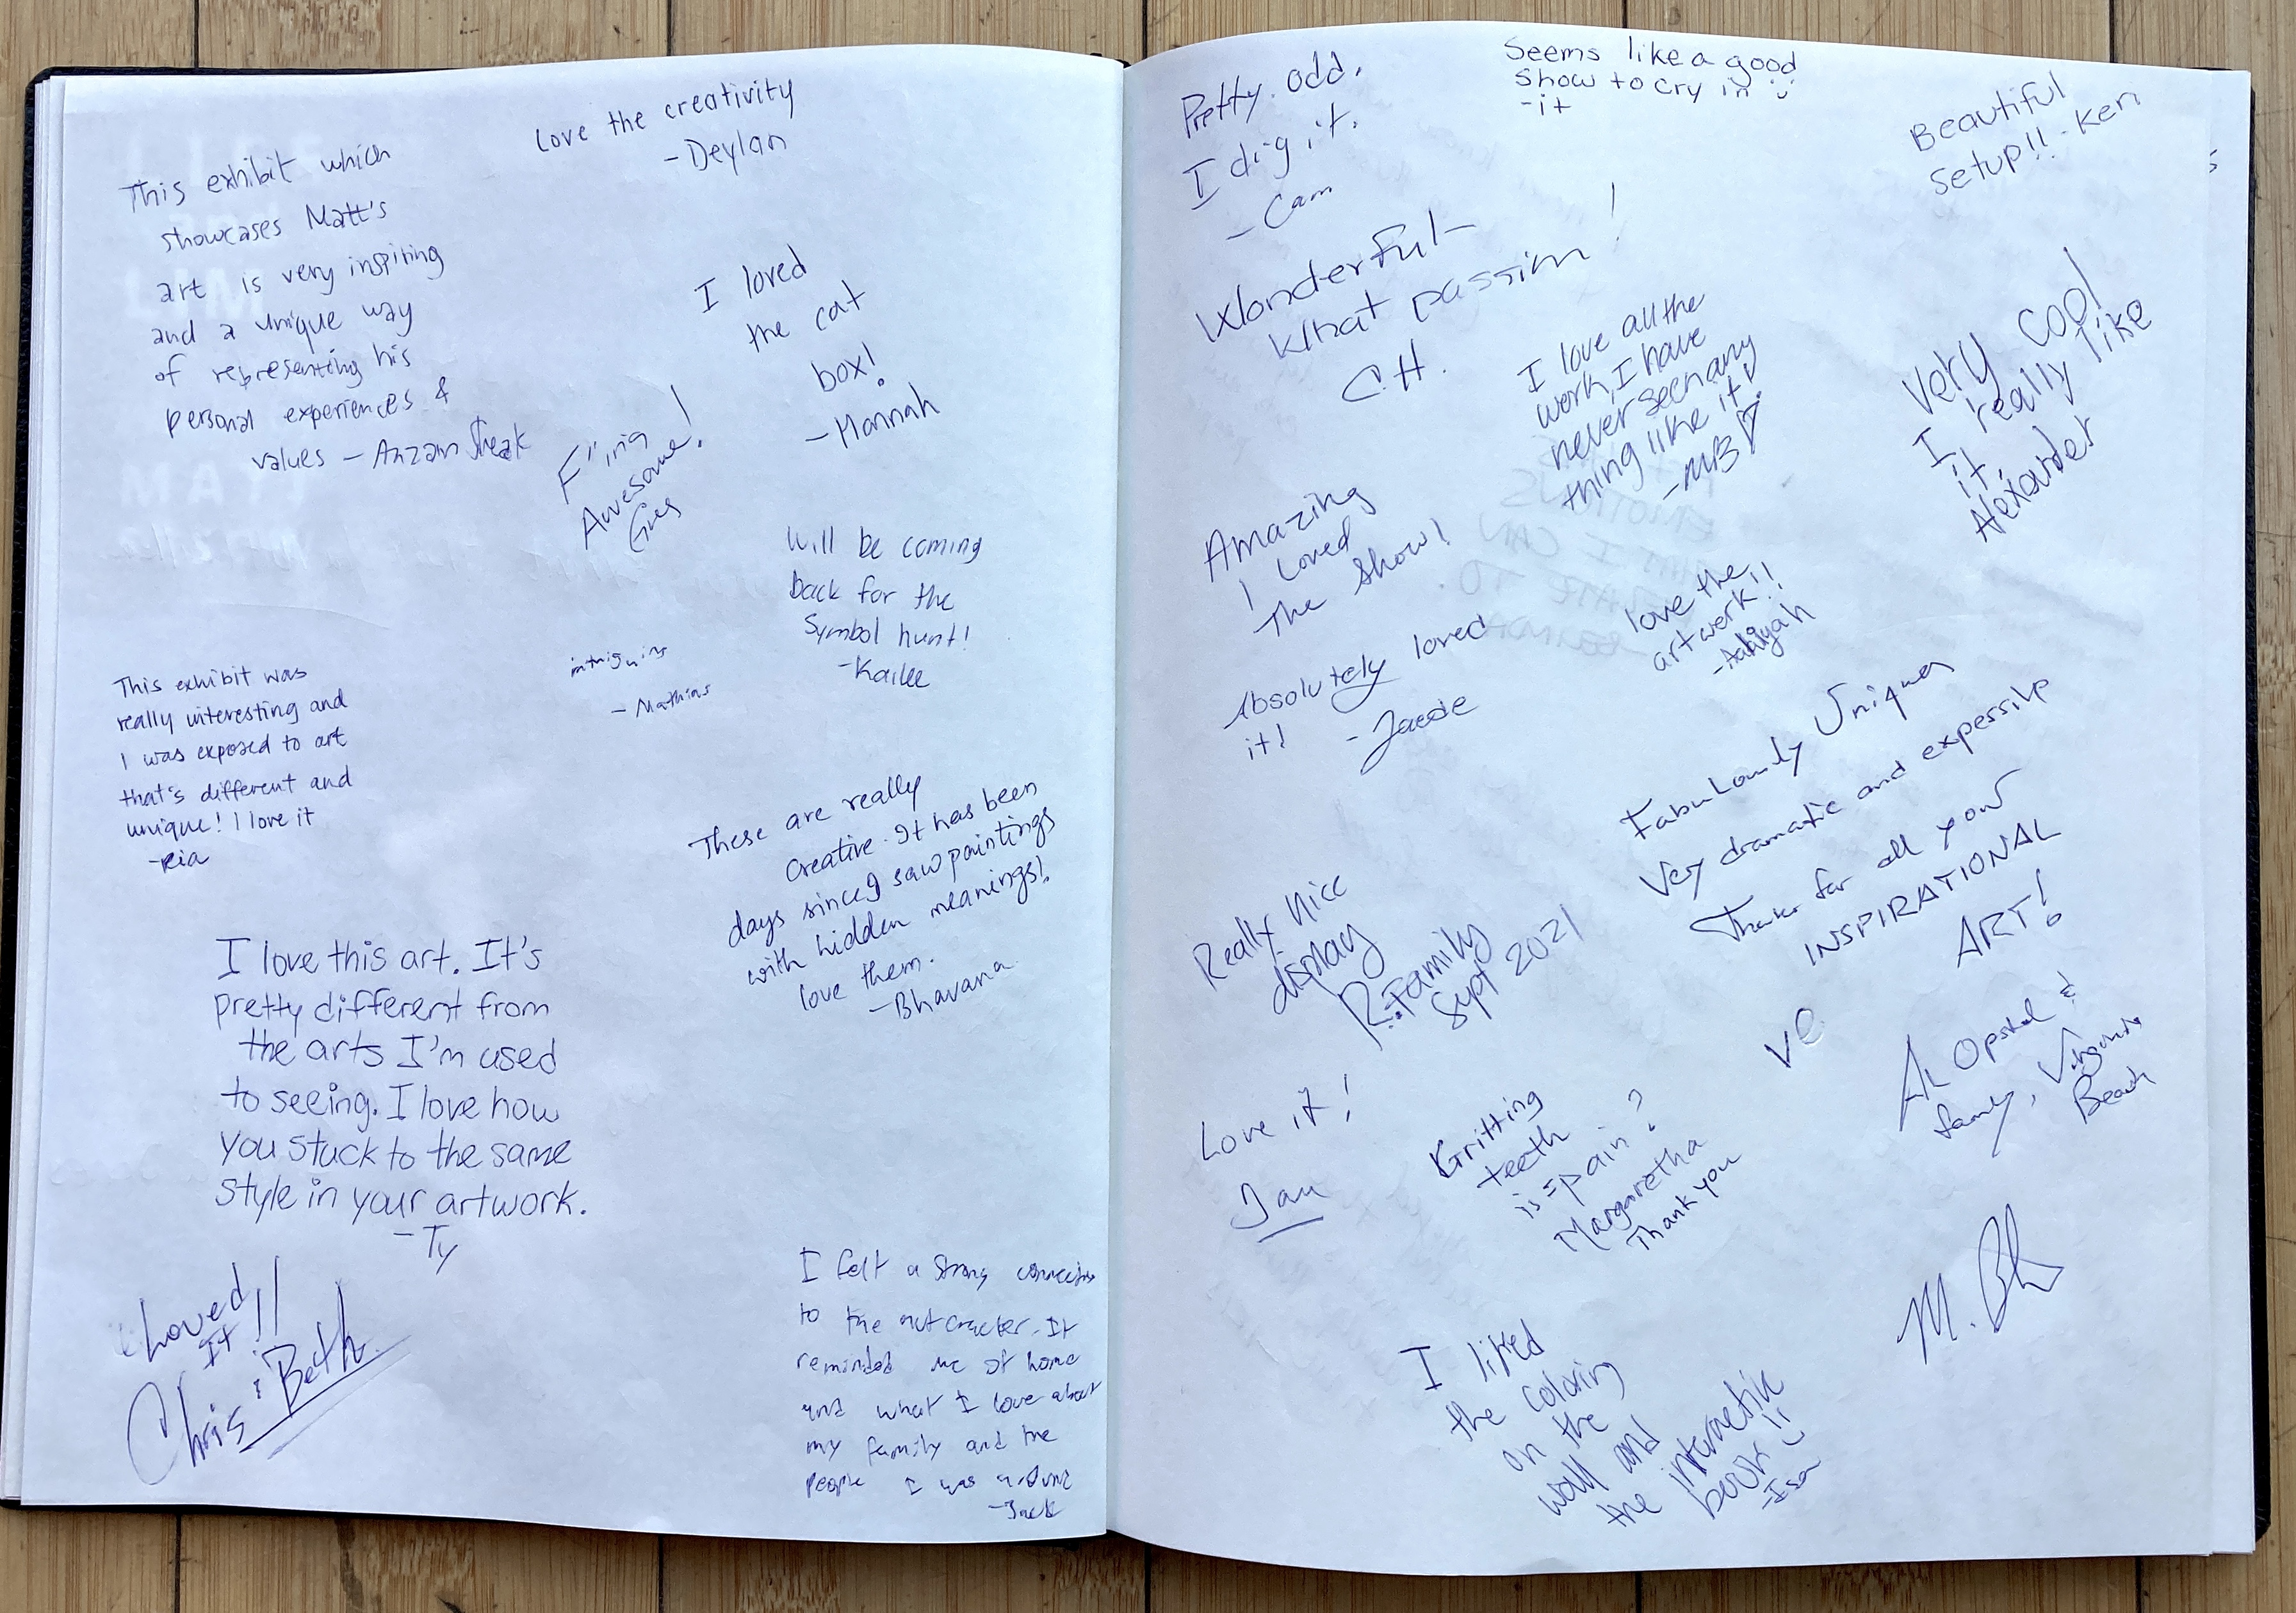 Love the creativity
-Deylan
This exhibit which
showcases Matt's
art is very inspiring
and a unique way
of representing his
personal experiences &
values - Anzam
I loved
the cat
box!
-Hannah
F'ing
Awesome!
Will be coming
back for the
Symbol hunt!
-Kailee
This exhibit was
really interesting and
I was exposed to art
that's different and
unique! I love it
-Ria
intriguing
- Mathias
These are really
creative. It has been
days since I saw paintings
with hidden meanings!
love them.
-Bhavana
I love this art. It's
pretty different from
the arts I'm used
to seeing. I love how
you stuck to the same
style in your artwork.
-Ty
Loved
It!!
Chris & Beth
I felt a strong connection
to the nutcracker. It
reminded me of home
and what I love about
my family and the
people I was around
-Jack
Pretty. odd.
I dig it.
-Cam
Seems like a good
show to cry in
-it
Beautiful
setup!! -Ken
Wonderful-
What passion!
C.H.
I love all the
work, I have
never seen any
thing like it!
-MB
Very cool
I really like
it.
Alexander
Amazing
I Loved
The Show!
love the
artwork!!
-Aaliyah
Absolutely loved
it!
Fabulously Unique
Very dramatic and
Thanks for all your
INSPIRATIONAL
ART!
Really Nice
display
R. Family
Sept 2021
ve
Al Opstal &
family, Virginia
Beach
Love it!
Jan
Gritting
teeth
is = pain?
Margaretha
Thank you
M.
I liked
the coloring
on the
wall and
the interactik
book!!